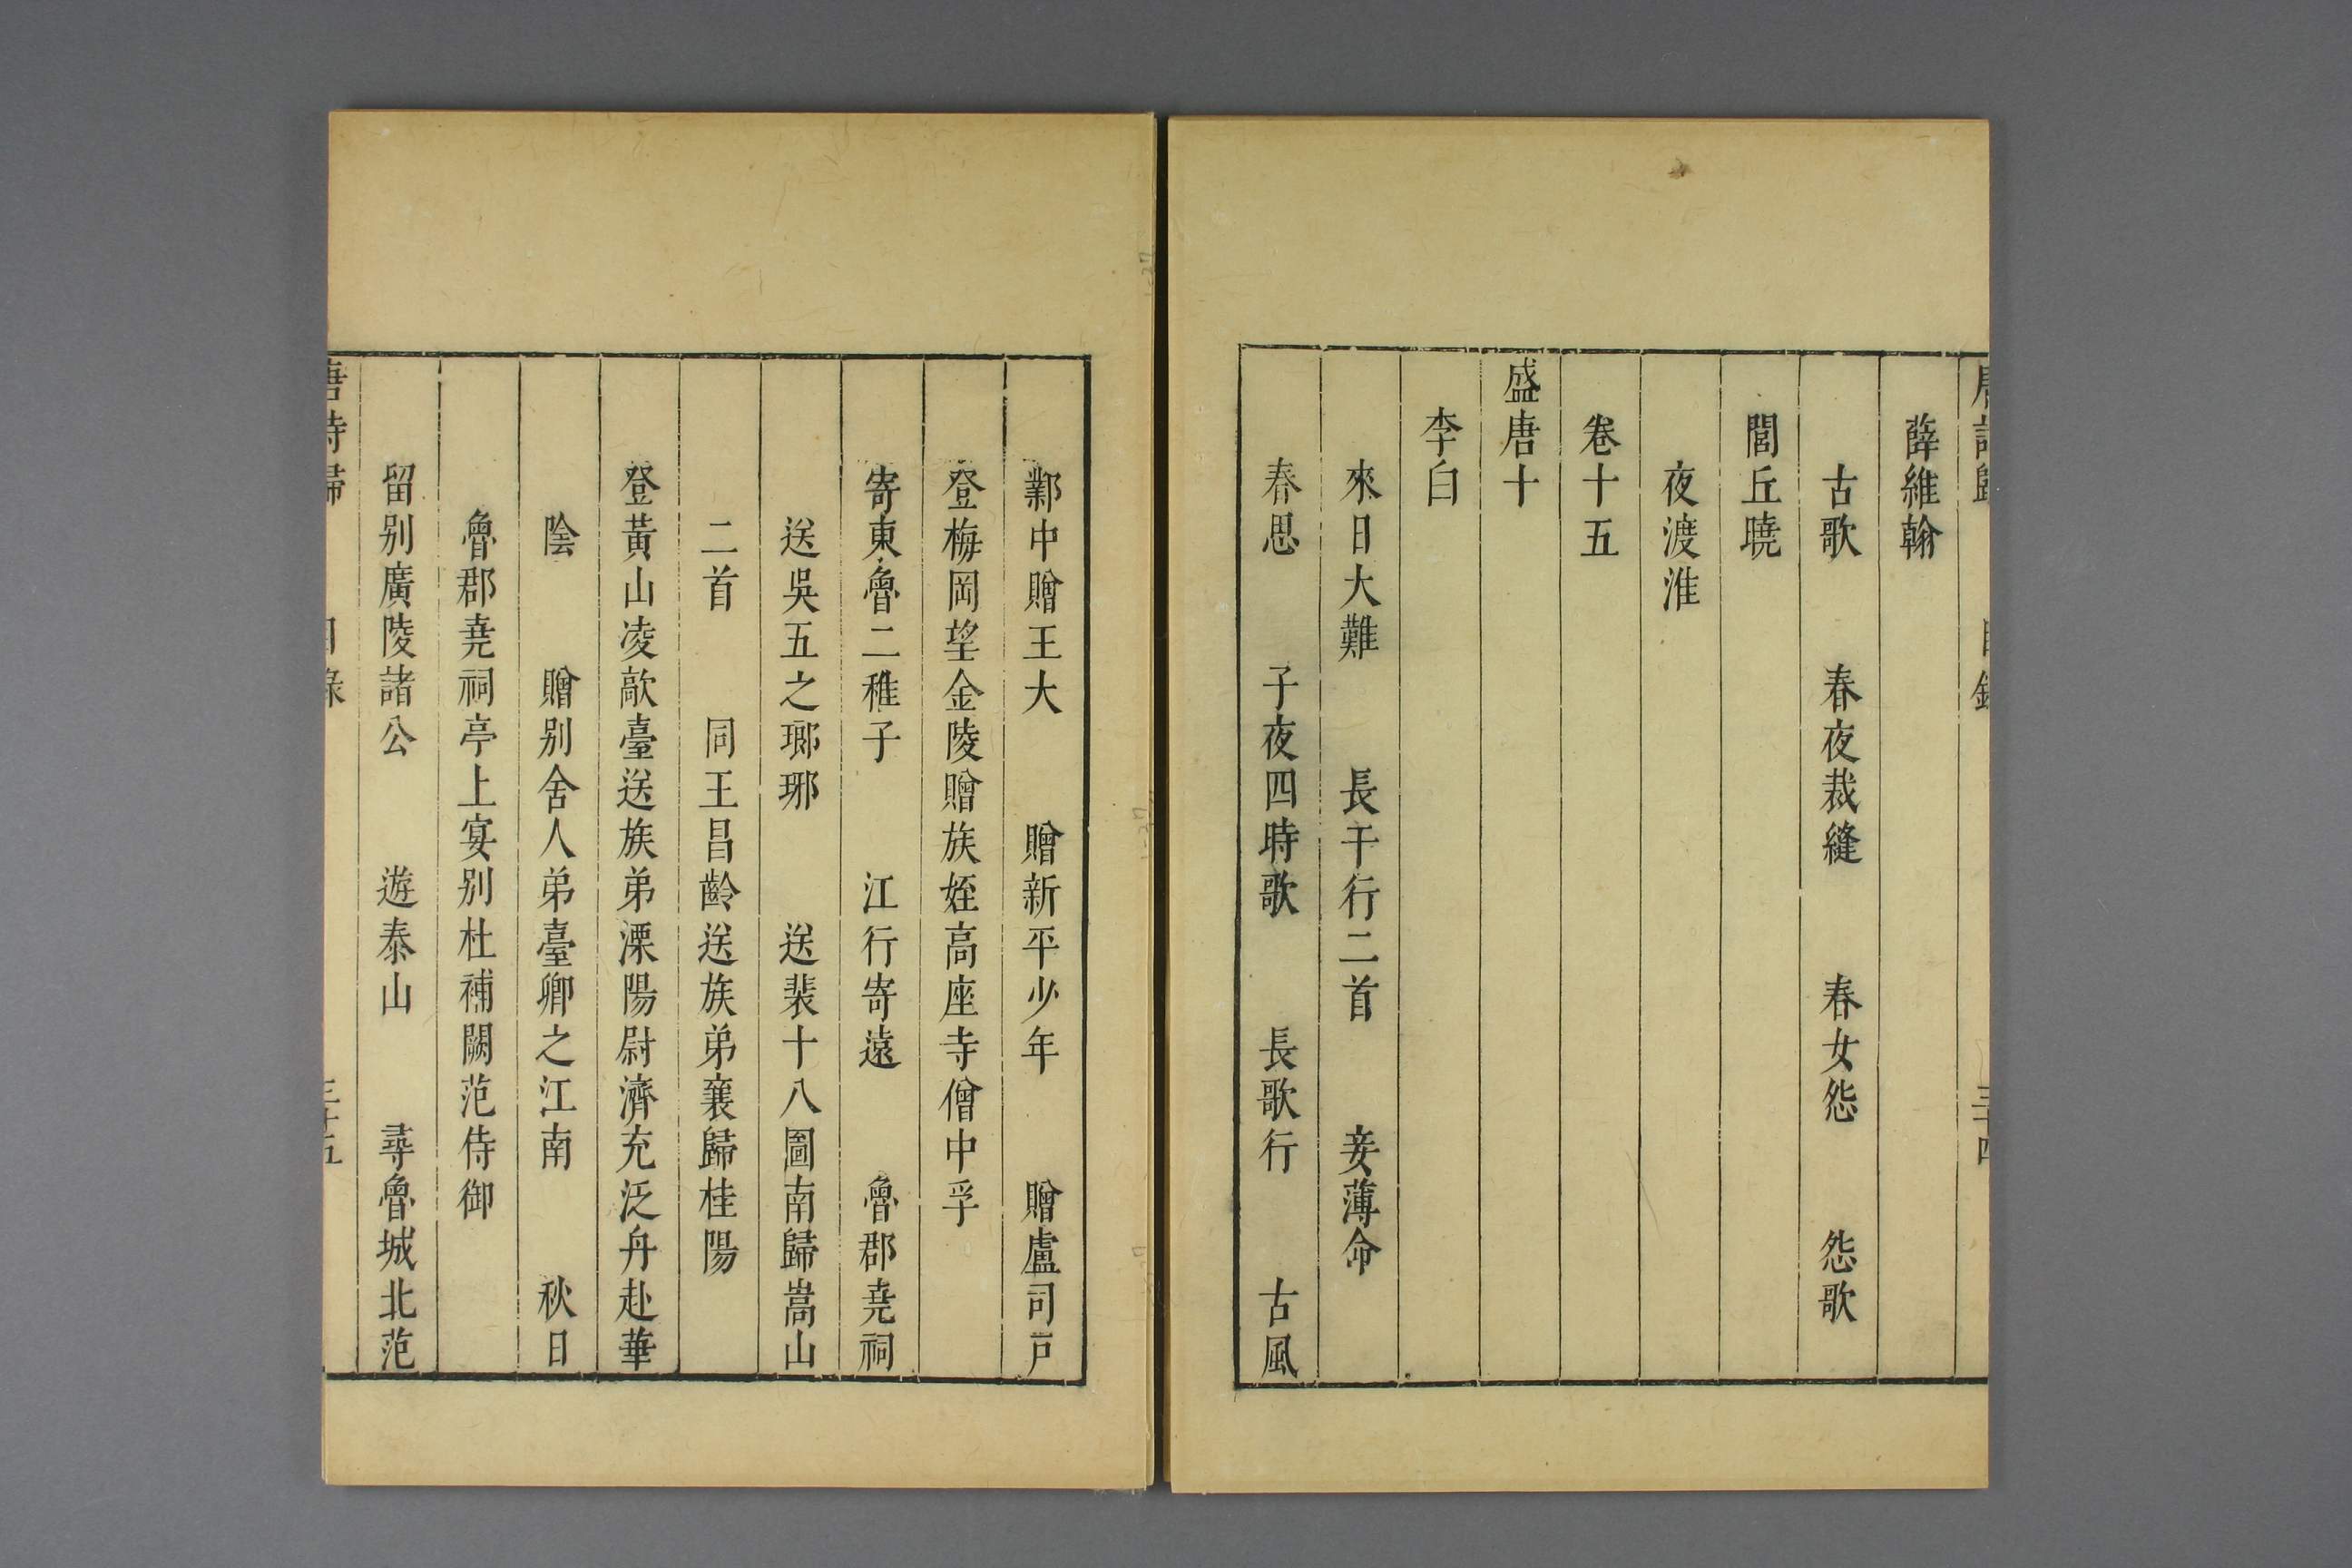 唐詩歸 目錄 三十四
薛維翰
古歌 春夜裁縫 春女怨 怨歌
閭丘曉
夜渡淮
卷十五
盛唐十
李白
來日大難 長干行二首 妾薄命
春思 子夜四時歌 長歌行 古風
鄴中贈王大 贈新平少年 贈盧司戸
登梅岡望金陵贈族姪高座寺僧中孚
寄東魯二稚子 江行寄遠 魯郡堯祠
送吳五之瑯琊 送裴十八圖南歸嵩山
二首 同王昌齡送族弟襄歸桂陽
登黃山凌歊臺送族弟溧陽尉濟充泛舟赴華
陰 贈别舍人弟臺卿之江南 秋日
魯郡堯祠亭上宴别杜補闕范侍御
留别廣陵諸公 遊泰山 尋魯城北范
唐詩歸 目錄 三十五